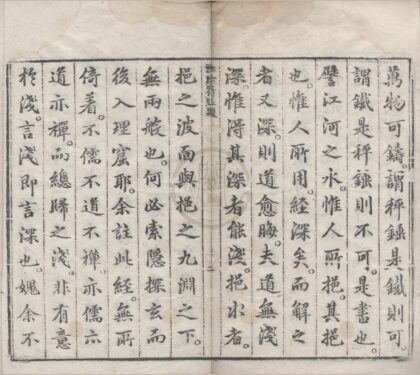 萬物可鑄。謂秤錘是鐵則可。
謂鐵是秤錘則不可。是書也。
譬江河之水。惟人所挹。其挹
也。惟人所用。經深矣。而解之
者又深。則道愈晦。夫道無淺
深。惟得其深者能淺。挹水者。
挹之波面與挹之九淵之下。
無兩般也。何必索隱探玄而
後入理窟耶。余註此經。無所
倚着。不儒不道不禪。亦儒亦
道亦禪。而總歸之淺。非有意
於淺。言淺即言深也。媿余不